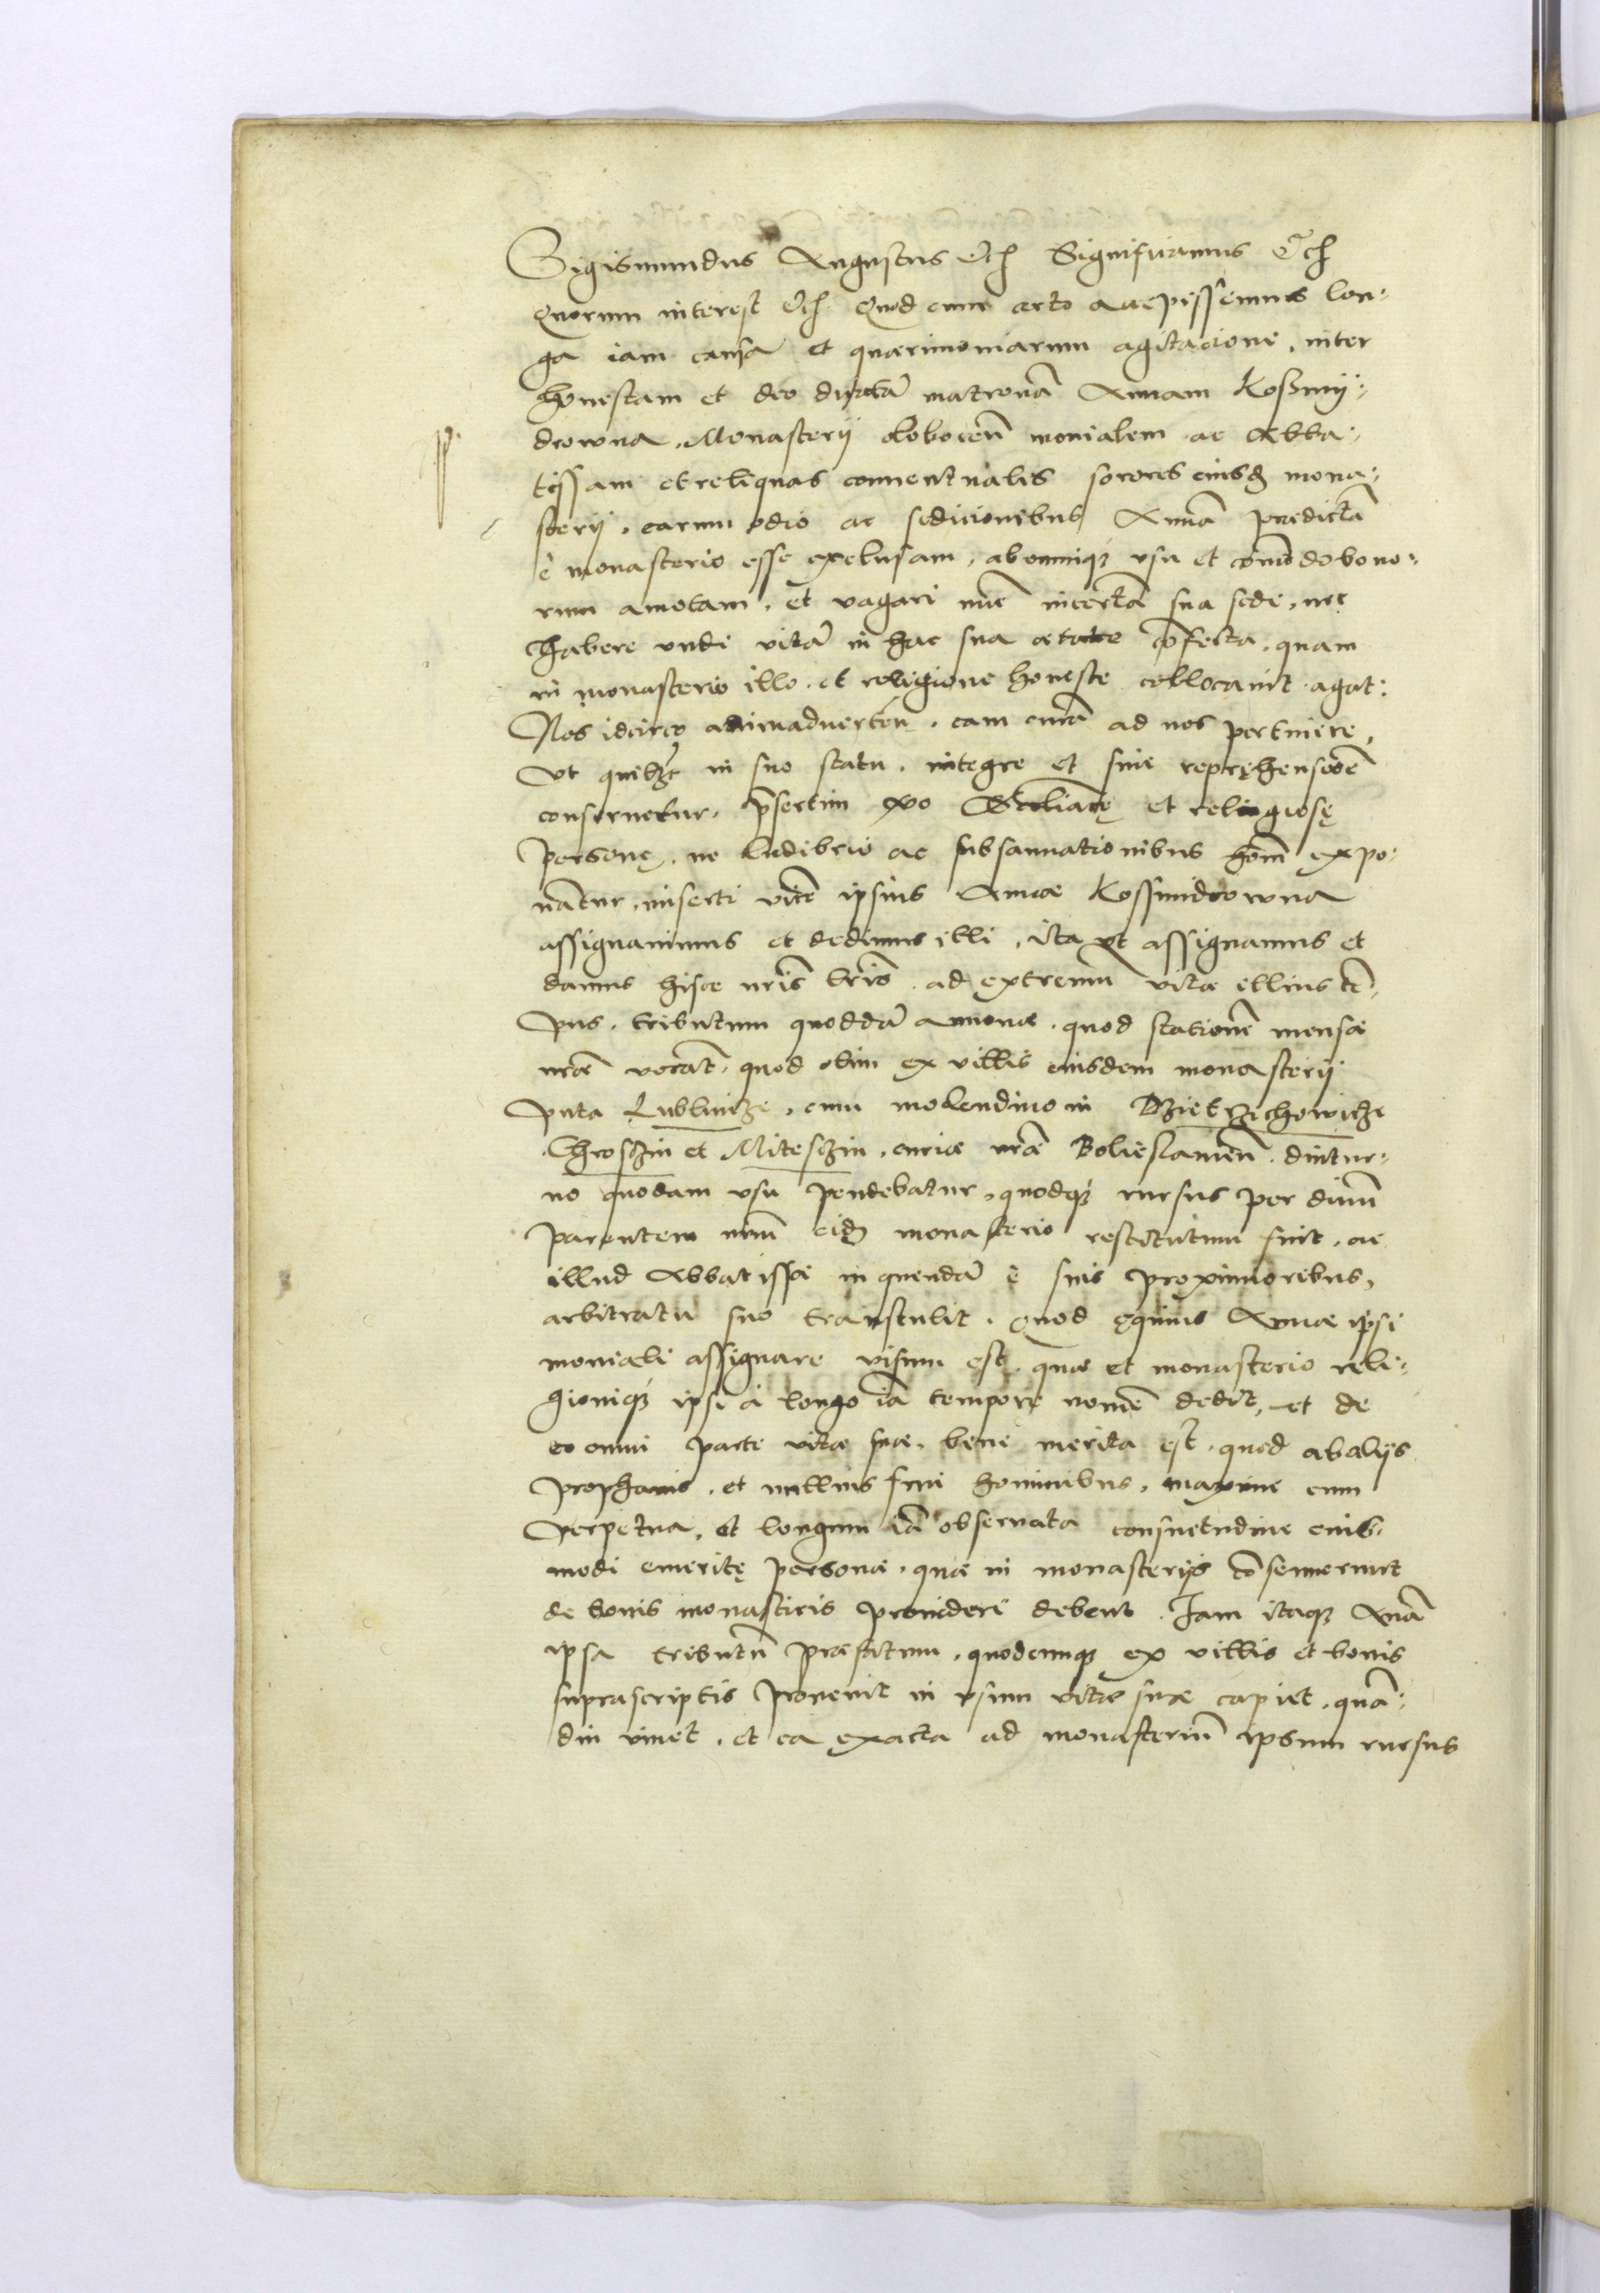 Sigismundus Augustus Etc Significamus Etc
Quorum interest Etc Quod cum certo accepissemus lon-
ga iam causa et quaerimoniarum agitacione, inter
honestam et deo dicatā matronā Annam Koszmij-
drowna, Monasterij oloboceñ monialem ac Abba-
tissam et reliquas conuentualis sorores eiusd mona-
sterij, earum odio ac sedicionibus Annā predictā
è monasterio esse exclusam, ab omniq vsu et cōmodo bono-
rum amotam, et vagari nūc incertā sua sede, nec
habere vnde vitā in hac sua aetate cōfecta, quam
in monasterio illo et religione honeste collocauit agat:
Nos idcirco animaduerteñ, eam curā ad nos pertinere,
Vt quilibet in suo statu, integre et sine repręhensioē
conseruetur, p̄sertim vo et religiosę
personę, ne ludibrio ac subsannationibus homī expo-
nātur, miserti vicē ipsius Annae Kossmidrowna
assignauimus et dedimus illi, ita vt assignamus et
damus hisce nr̄is lr̄is ad extremū vitae illius tē-
pus, tributum quoddā annonae, quod stationē mensae
nr̄ae vocāt, quod olim ex villis eiusdem monasterij
puta Lublinicze, cum molendino in Dzietrzichowicze
Chroszin et Miteszin, curiae nr̄ae Bolieslauieñ diutur-
no quodam vsu pendebatur, quodq rursus per diuū
parentem nr̄m eid monasterio restitutum fuit, ac
illud Abbatissa in quendā è suis proximioribus,
arbitratu suo transtulit. Quod ęquius Annae ipsi
moniali assignare visum est, quae et monasterio reli-
gioniq ipsi à longo iā tempore nomē dedit, et de
eo omni parte vitae suae, bene merita est, quod ab alijs
prophanis, et nullius frui hominibus, maxime cum
perpetua, et longum iā obseruata consuetudine eius-
modi emeritę personae, quae in monasterijs cōsenuerunt
de bonis monastiris prouideri debent. Iam itaq Annā
ipsa tributū praefatum, quodcunq ex villis et bonis
suprascriptis prouenit in vsum vitae suae capiet, quā-
diu viuet, et ea exacta ad monasteriū ipsum rursus